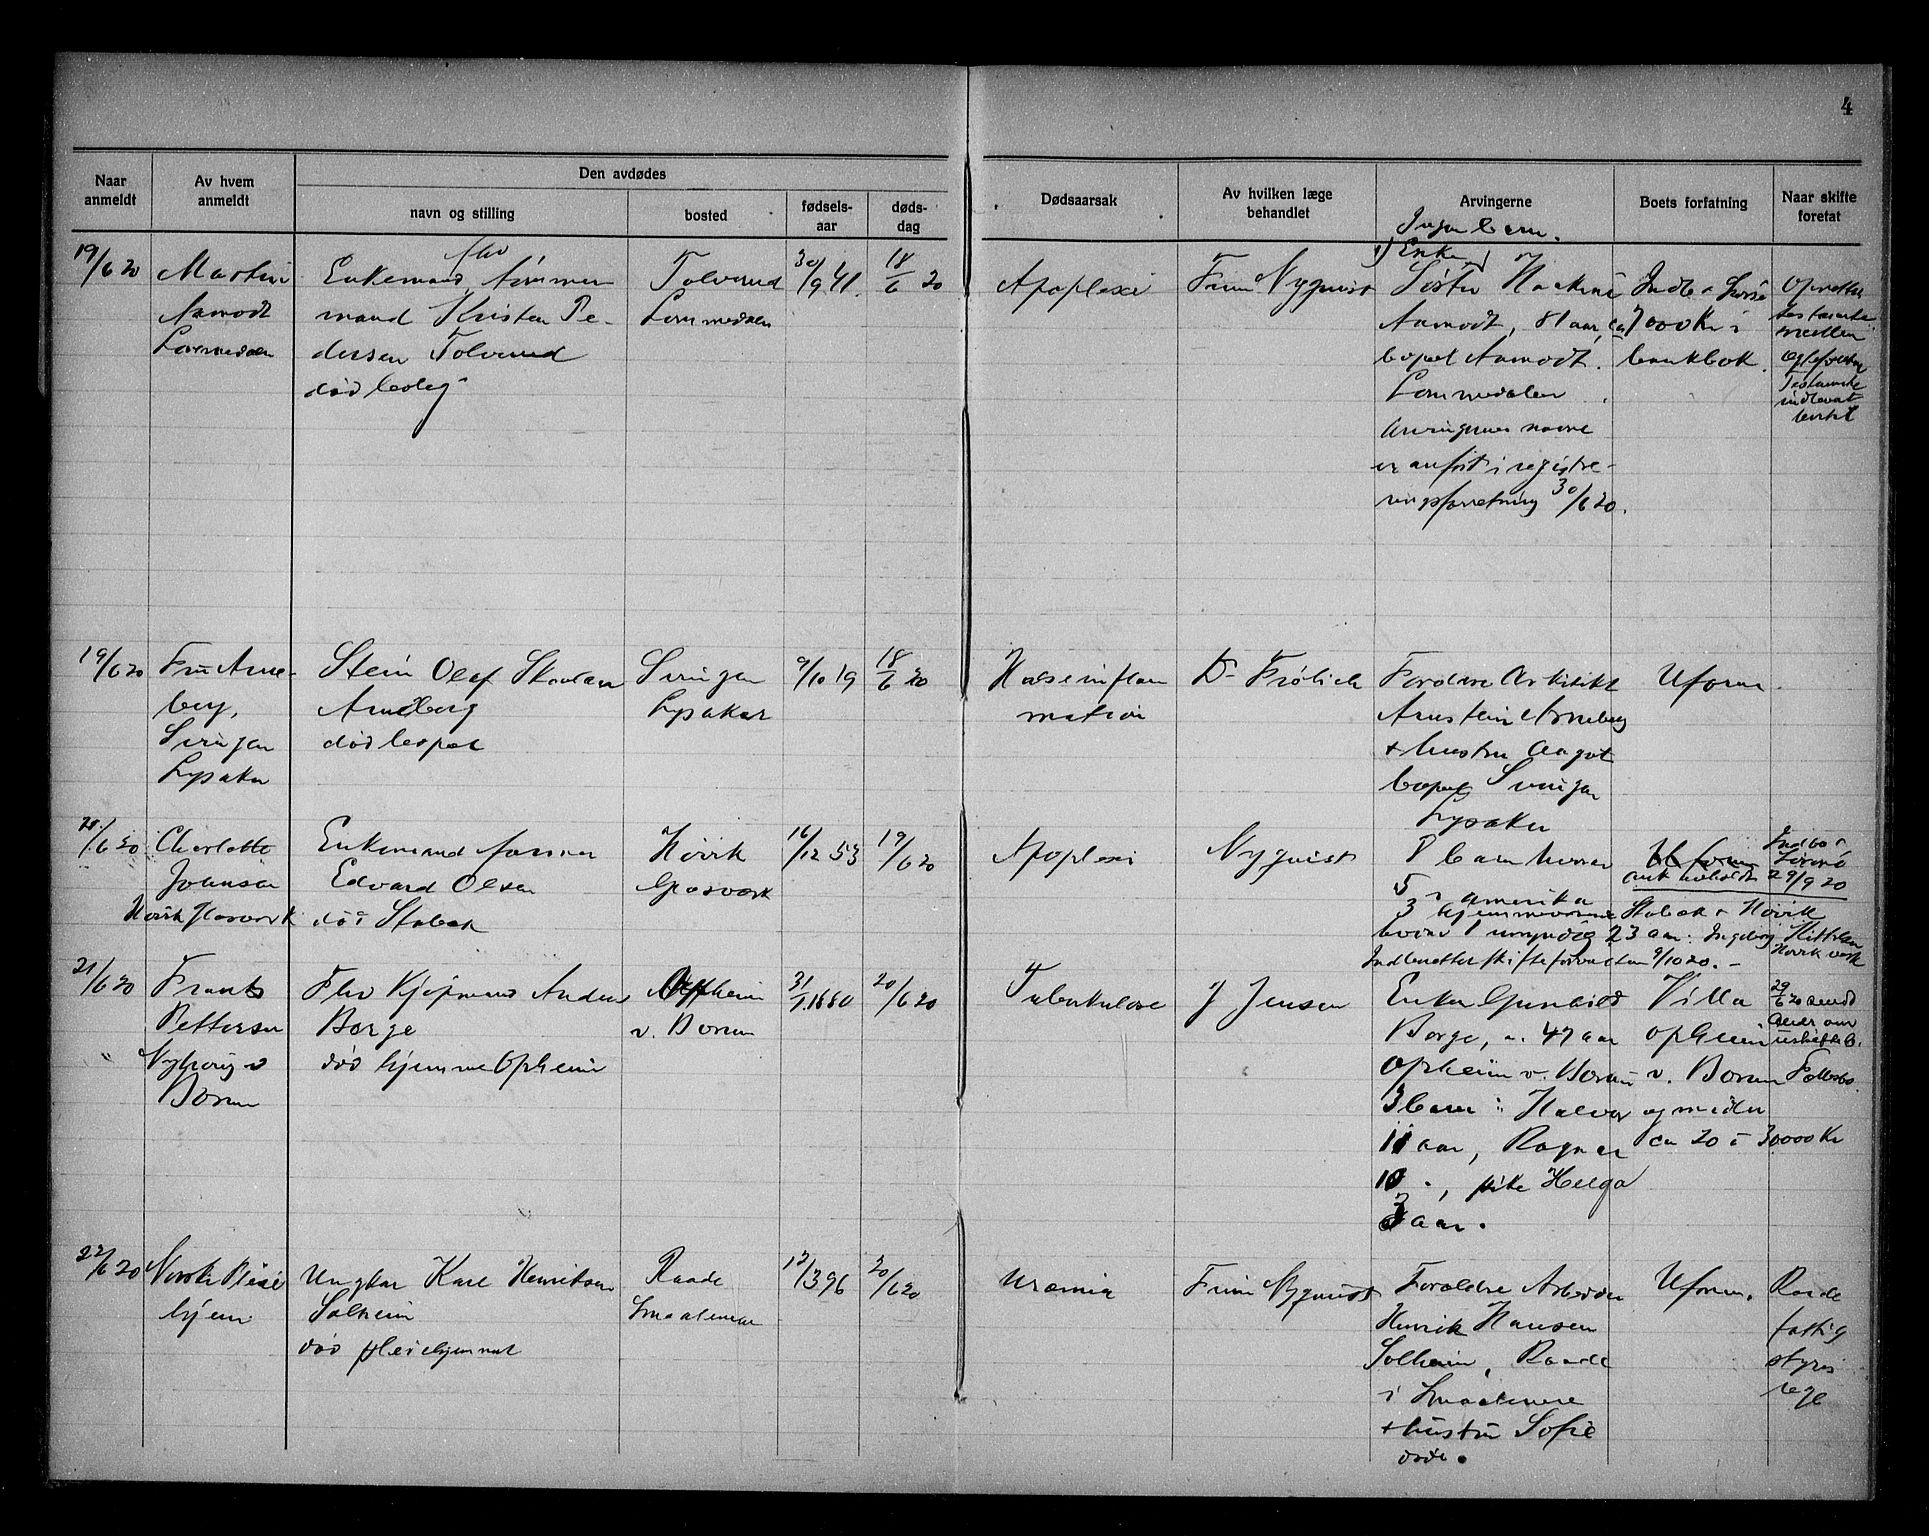 4
Den avdødes
Naar anmeldt
Av hvem anmeldt
navn og stilling
bosted
fødselsaar
dødsdag
Dødsaarsak
Av hvilken læge behandlet
Arvingerne
Boets forfatning
Naar skifte foretat
19/6 20
Martin
Aamodt
Lommedalen
fhv
Enkemand, tømmer
mand Kristen Pe-
dersen Tolverud
død bolig
Tolverud
Lommedalen
30/9 41.
18/6 20
Apoplexi
Finn Nyquist
Ingen barn.
Enke
Søster
Aamodt, 81 aar,
bopæl Aamodt.
Lommedalen
Arvingernes navne
er anført i registre-
ringsforretning 30/6 20.
Indbo & løsøre
ca 7000 Kr i
bankbok.
Oprettet
testamente
mellem
Testamente
indlevert
19/6 20
Fru Arne-
berg,
Svingen
Lysaker
Stein Olaf Skavlan
Arneberg
død bopæl
Svingen
Lysaker
9/10 19
18/6 20
Halsinflam
mation
Dr Frølich
Forældre Arkitekt
Arnstein Arneberg
+ hustru Aagot
bopæl Svingen
Lysaker
Uform.
21/6 20
Charlotte
Johnsen
Høvik Glasverk
Enkemand former
Edvard Olsen
død Stabæk
Høvik
Glasværk
16/12 53
19/6 20
Apoplexi
Nyquist
8 barn hvorav
5 i amerika
3 hjemmeværende Stabæk & Høvik
hvorav 1 umyndig 23 aar: Ingeborg
Indberettet skifteforvalteren 9/10 20. -
Uform
Indbo
Løsøre
29/9 20
Høvik verk
21/6 20
Frants
Pettersen
Nyborg v
Borum
Fhv Kjøpmand Anders
Borge
død hjemme Opheim
Opheim
v. Borum
31/1 1880
20/6 20
Tuberkulose
J Jensen
Enken Gunhild
Borge, n. 47 aar
Opheim v. Borum
3 barn: Halvor
11 aar, Ragnar
10 -, pike Helga
3 aar.
Villa
Opheim
v. Borum
og midler
ca 20 à 30000 Kr
29/6 20 sendt
uskiftet b.
Fællesbo.
22/6 20
Norsk Pleie
hjem
Ungkar Karl Henriksen
Solheim
død pleiehjemmet
Raade
Smaalenene
12/3 96
20/6 20
Uræmia
Finn Nyquist
Forældre Arbeider
Henrik Hansen
Solheim, Raade
i Smaalenene
+ hustru Sofie
døde.
Uform.
Raade
fattig
styres